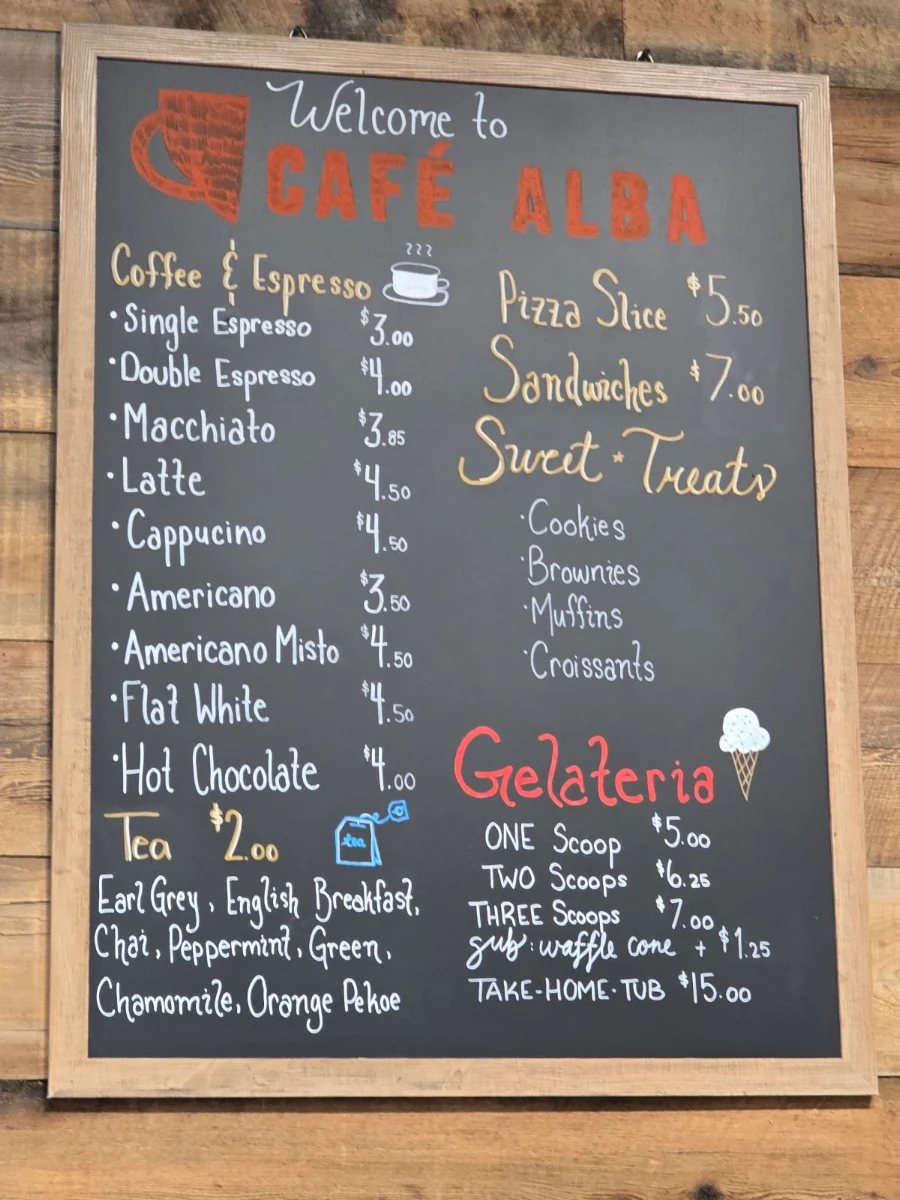 Welcome to
CAFÉ ALBA
Coffee & Espresso
·Single Espresso $3.00
·Double Espresso $4.00
·Macchiato $3.85
·Latte $4.50
·Cappucino $4.50
·Americano $3.50
·Americano Misto $4.50
·Flat White $4.50
·Hot Chocolate $4.00
Tea $2.00
tea
Earl Grey, English Breakfast,
Chai, Peppermint, Green,
Chamomile, Orange Pekoe
Pizza Slice $5.50
Sandwiches $7.00
Sweet Treats
·Cookies
·Brownies
·Muffins
·Croissants
Gelateria
ONE Scoop $5.00
TWO Scoops $6.25
THREE Scoops $7.00
sub: waffle cone + $1.25
TAKE-HOME-TUB $15.00